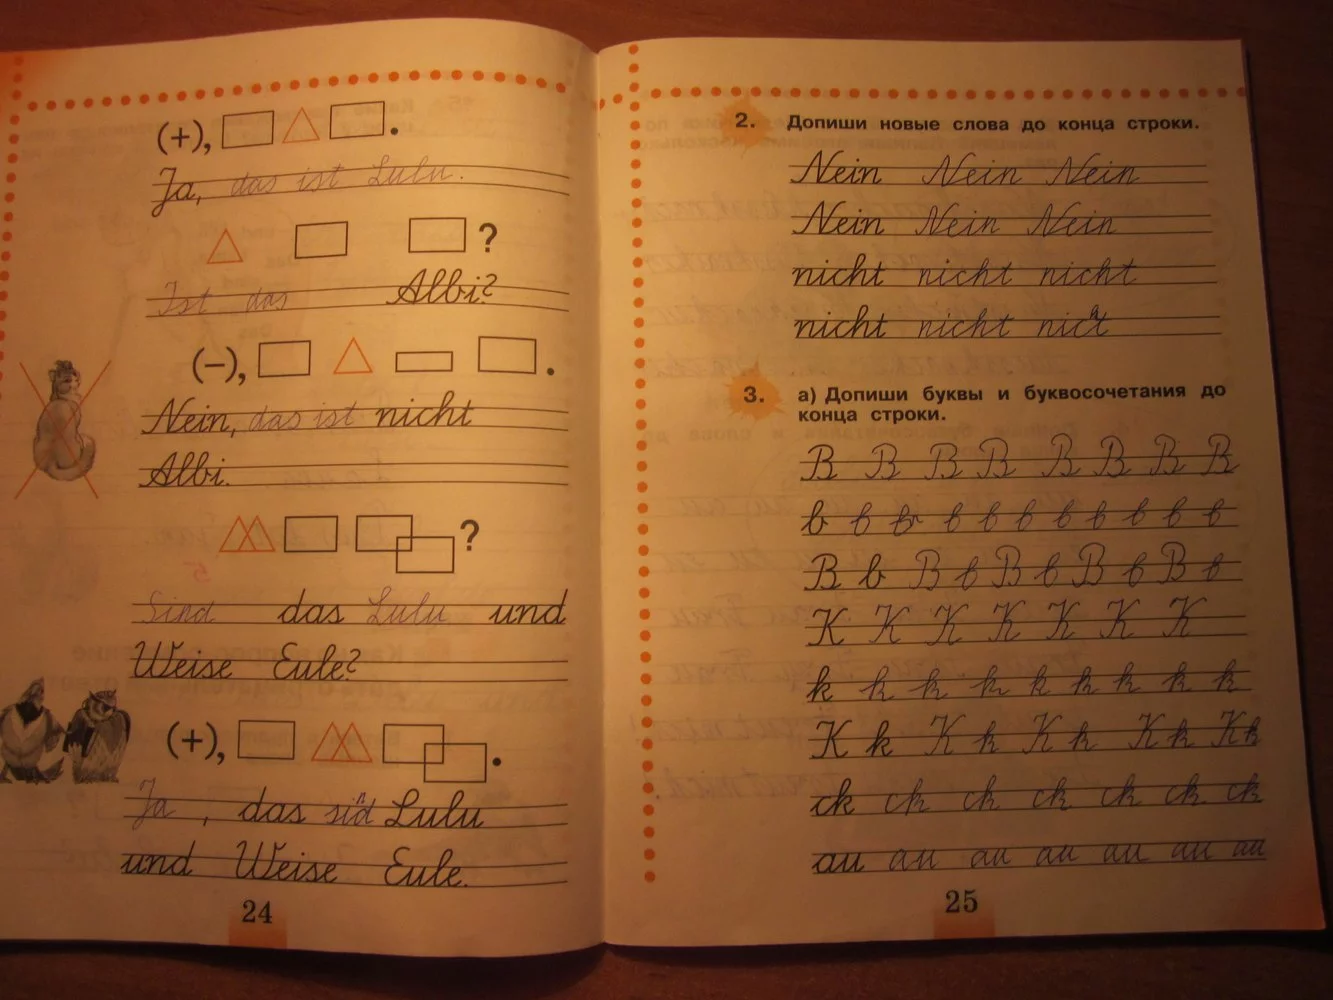 (+),
.
Ja, das ist Lulu.
?
Ist das Albi?
(–),
.
Nein, das ist nicht
Albi.
?
Sind das Lulu und
Weise Eule?
(+),
.
Ja, das sind Lulu
und Weise Eule.
24
2. Допиши новые слова до конца строки.
Nein Nein Nein
Nein Nein Nein
nicht nicht nicht
nicht nicht nicht
3. а) Допиши буквы и буквосочетания до
конца строки.
B B B B B B B B
b b br b b b b b b b b
B b B b B b B b B b
K K K K K K K
k k k k k k k k k
K k K k K k K k K k
ck ck ck ck ck ck ck
au au au au au au au
25